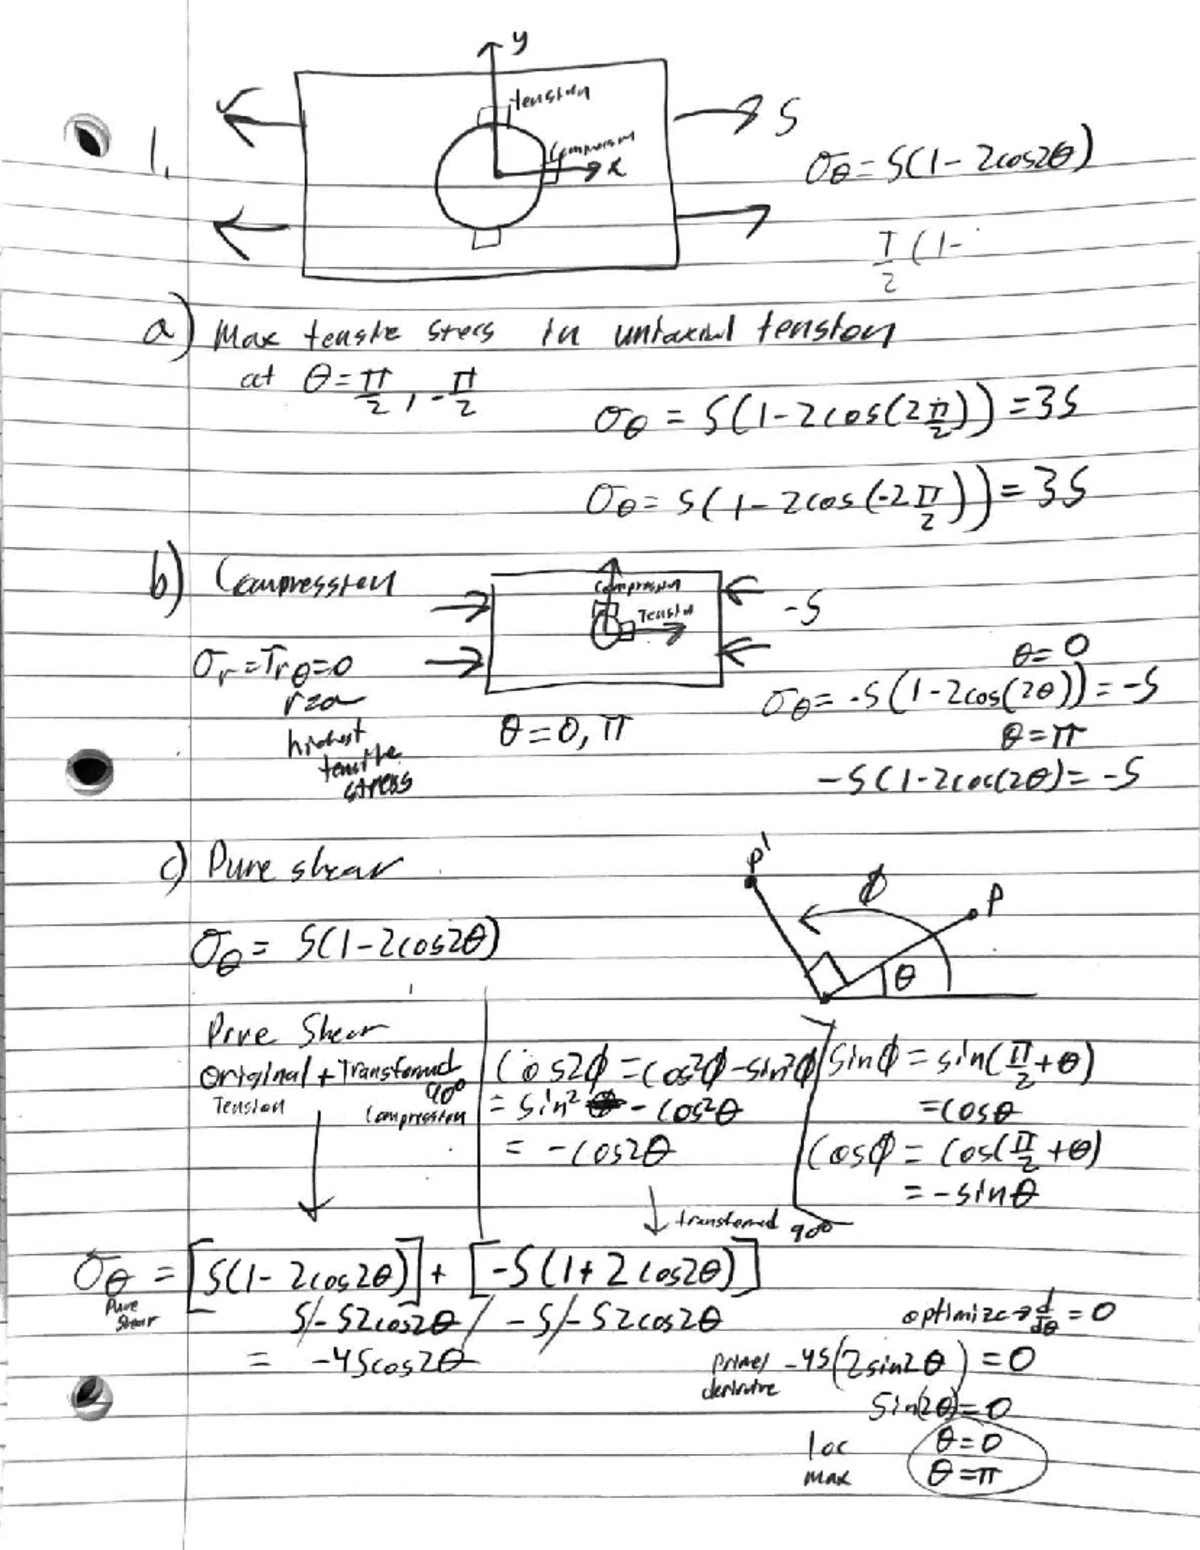 y
tension
S
1.
Compression
x
σθ = S(1 - 2cos2θ)
T/2 (1-
a) Max tensile stress in uniaxial tension
at θ = π/2, -π/2
σθ = S(1-2cos(2π/2)) = 3S
σθ = S(1-2cos(-2π/2)) = 3S
b) Compression
Compression
Tension
-S
σr = τrθ = 0
r=a
highest
tensile
stress
θ = 0, π
θ = 0
σθ = -S(1-2cos(2θ)) = -S
θ = π
-S(1-2cos(2θ) = -S
c) Pure shear
P'
φ
P
θ
σθ = S(1-2cos2θ)
Pure Shear
original + Transformed
90°
Tension
Compression
cos2φ = cos²φ - sin²φ
= sin²θ - cos²θ
= -cos2θ
sinφ = sin(π/2 + θ)
= cosθ
cosφ = cos(π/2 + θ)
= -sinθ
transformed 90°
σθ = [S(1-2cos2θ)] + [-S(1+2cos2θ)]
Pure
Shear
S - S2cos2θ - S - S2cos2θ
= -4Scos2θ
optimize → d/dθ = 0
prime/
derivative
-4S(2sin2θ) = 0
sin(2θ) = 0
loc
max
θ = 0
θ = π